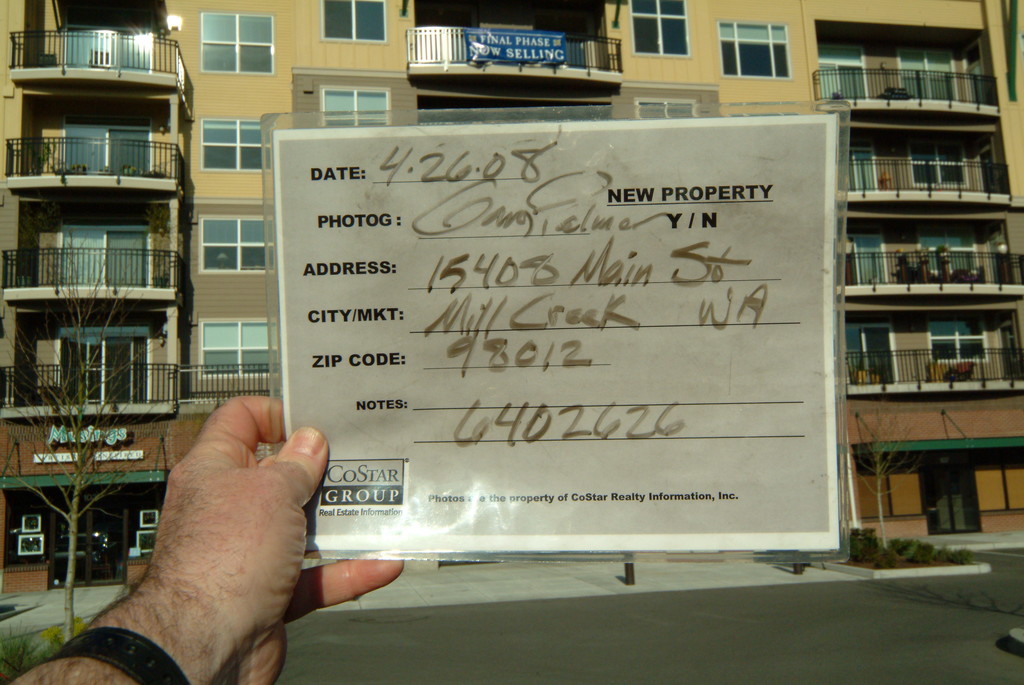 FINAL PHASE
NOW SELLING
DATE: 4.26.08
NEW PROPERTY
PHOTOG: Gary Palmer Y / N
ADDRESS: 15408 Main St
CITY/MKT: Mill Creek WA
ZIP CODE: 98012
NOTES:
6402626
Musings
COSTAR
GROUP
Real Estate Information
Photos are the property of CoStar Realty Information, Inc.